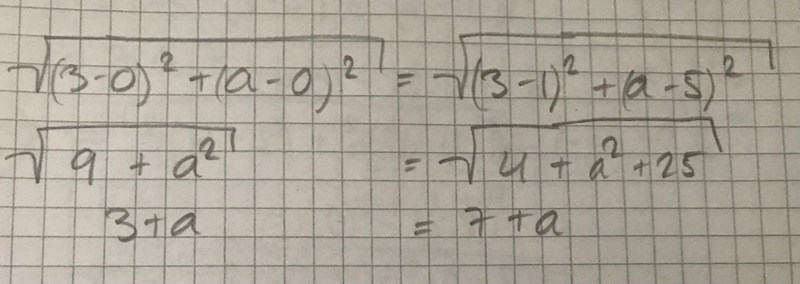 √(3-0)² + (a-0)² = √(3-1)² + (a-5)²
√9 + a² = √4 + a² + 25
3+a = 7+a